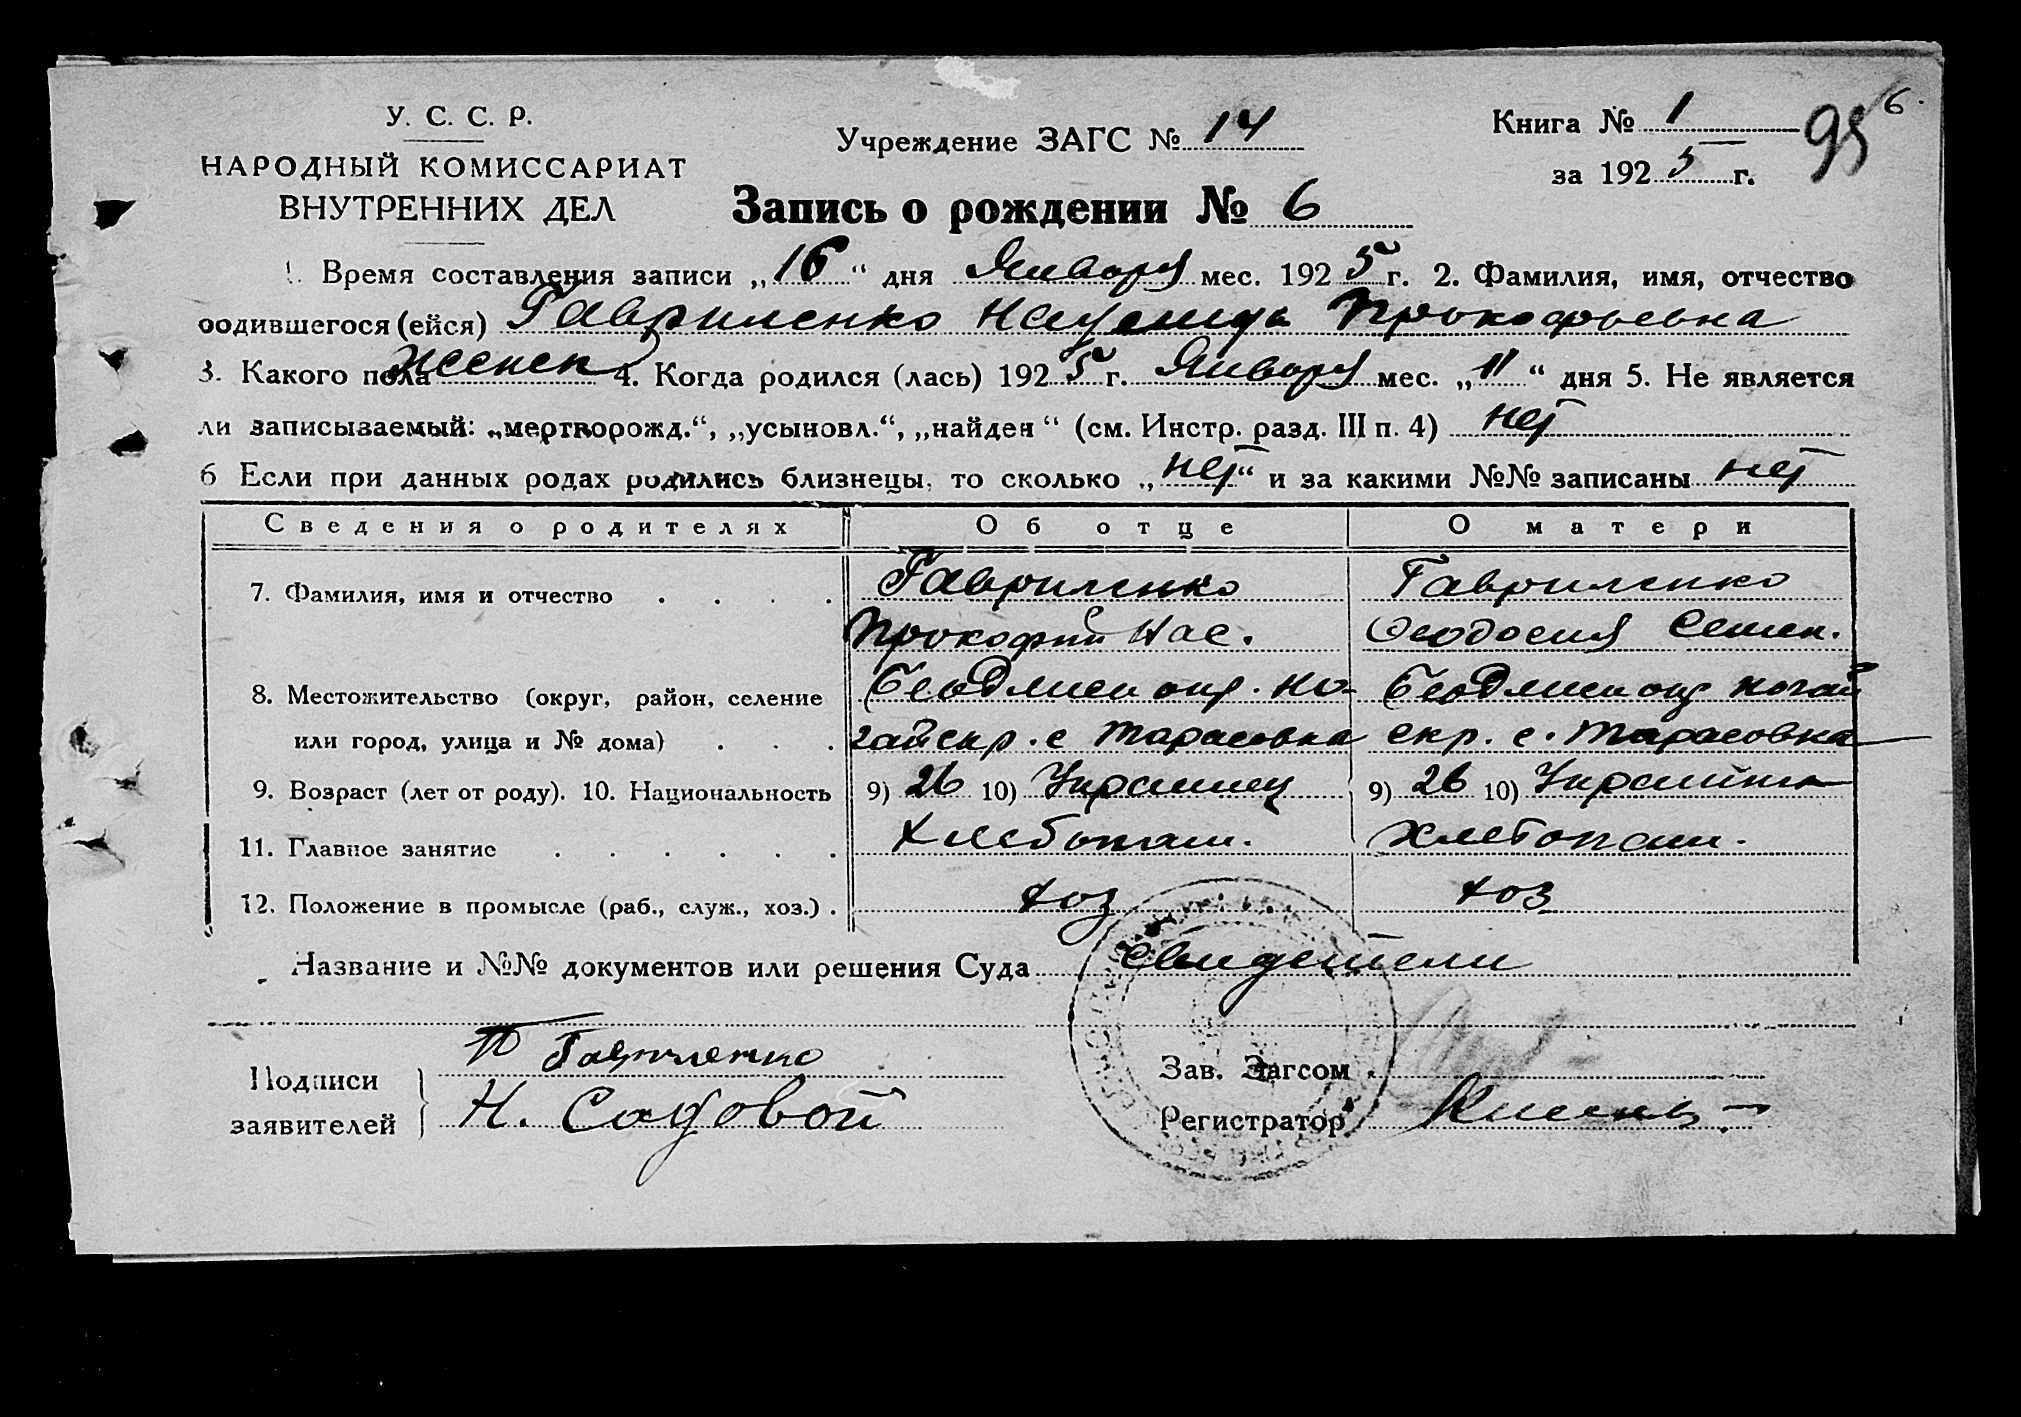 У. С. С. Р.
НАРОДНЫЙ КОМИССАРИАТ
ВНУТРЕННИХ ДЕЛ
Учреждение ЗАГС № 14
Книга № 1
95
6.
за 1925 г.
Запись о рождении № 6
1. Время составления записи „16“ дня Января мес. 1925 г. 2. Фамилия, имя, отчество
родившегося (ейся) Гавриленко Прокофьевна
3. Какого пола женск 4. Когда родился (лась) 1925 г. Января мес. „11“ дня 5. Не является
ли записываемый: „мертворожд.“, „усыновл.“, „найден“ (см. Инстр. разд. III п. 4) нет
6 Если при данных родах родились близнецы, то сколько „нет“ и за какими №№ записаны нет
Сведения о родителях Об отце О матери
7. Фамилия, имя и отчество . . . . Гавриленко Гавриленко
Прокофий Нас. Феодосия Семен.
8. Местожительство (округ, район, селение Но- Ногай
или город, улица и № дома) . . . гайскр. с Тарасовка скр. с. Тарасовка
9. Возраст (лет от роду). 10. Национальность 9) 26 10) Украинец 9) 26 10) Украинка
11. Главное занятие . . . . . . Хлебопаш. Хлебопаш.
12. Положение в промысле (раб., служ., хоз.) . хоз хоз
Название и №№ документов или решения Суда Свидетели
Подписи
заявителей
П Гавриленко
Н. Садовой
Зав. Загсом
Регистратор